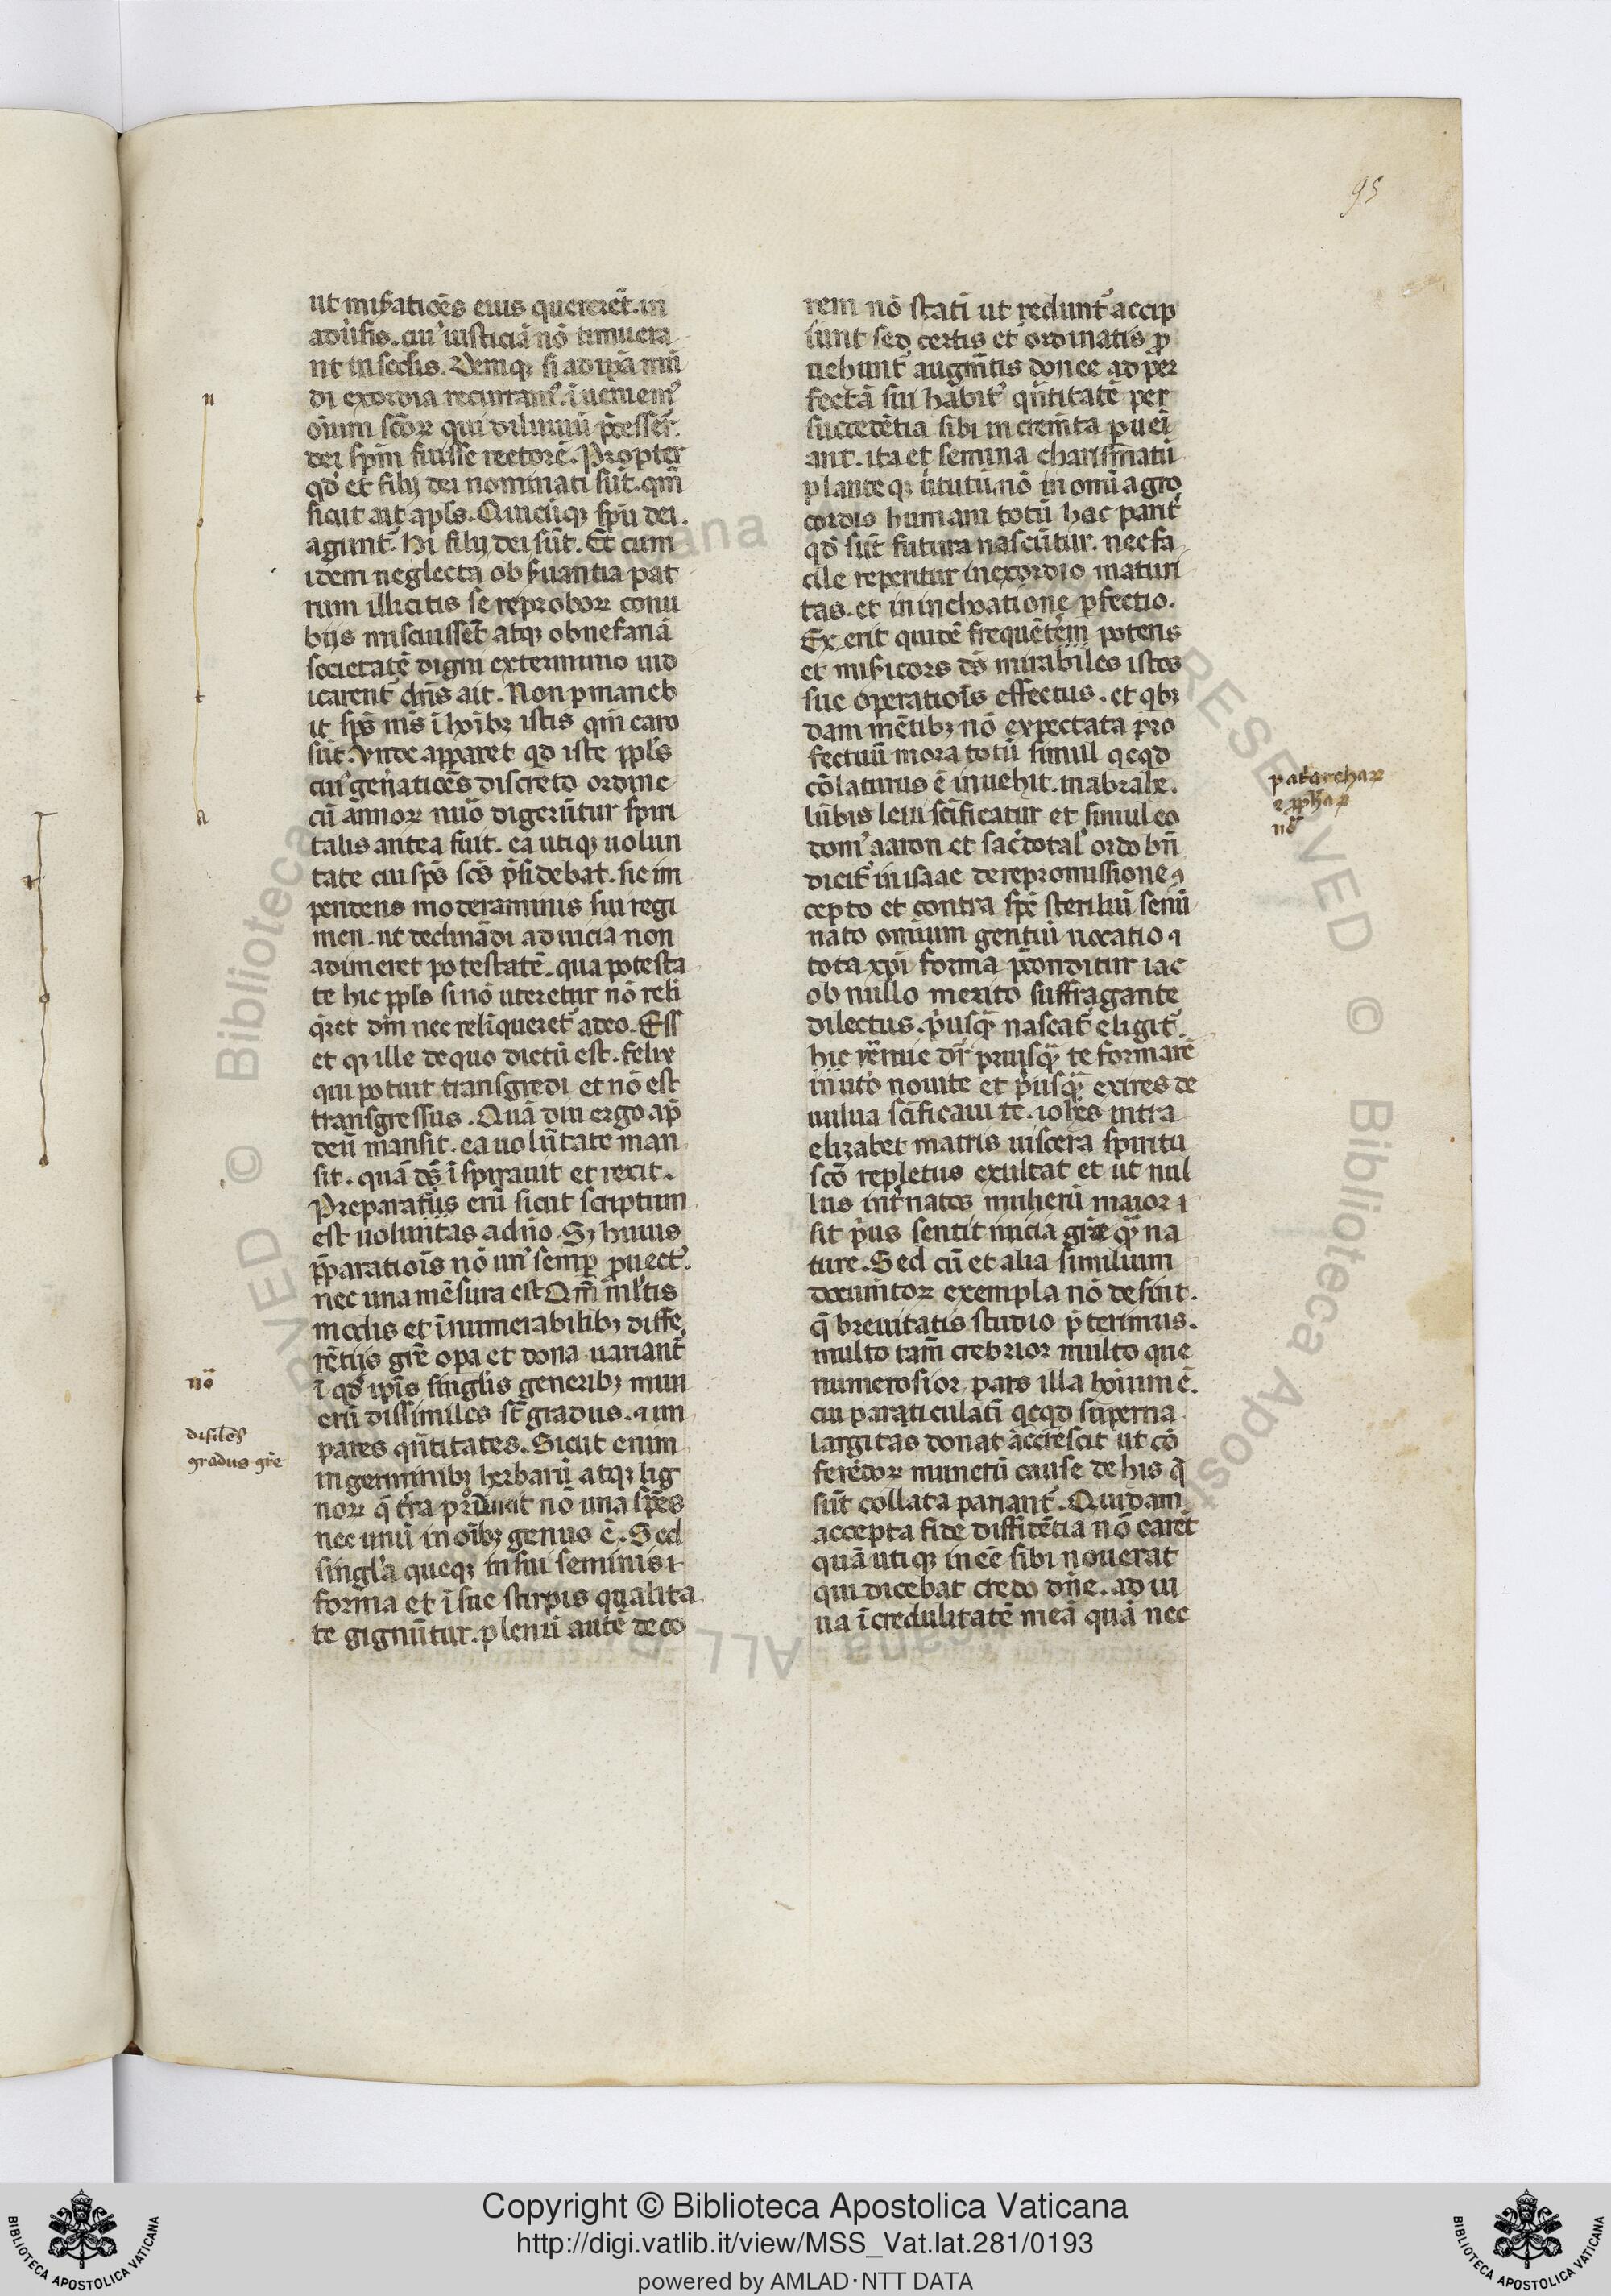 95
ut miẜatiões eius quererẽt. in
adũſis. cuiꝰ iusticiã nõ timuera
nt in sechis. Deniqꝫ si ad ipã mũ
di exordia recurramꝰ. ĩueniemꝰ
oĩum scõꝝ qui diluuiũ p̃cesser̃t.
dei sp̃m fuisse rectorẽ. Propter
qđ et filij dei nominati sũt. qm̃
sicut ait apl̃s. Quicũqꝫ sp̃u dei.
agunt᷑. Hi filij dei sũt. Et cum
idem neglecta obẜuantia pat
rum illicitis se reproboꝝ conu
bijs miscuissẽt atqꝫ ob nefariã
societatẽ digni exterminio iud
icarent᷑ dñs ait. Non ꝑmaneb
it sp̃s mẽs ĩ hoĩbꝫ istis qm̃ caro
sũt. Vnde apparet qđ iste ppl̃s
cuiꝰ gen̾atiões discreto ordine
cũ annoꝝ nũo digerũtur spiri
talis antea fuit. ea utiqꝫ uolun
tate cui sp̃s sc̃s p̃sidebat. sic im
pendens moderaminis sui regi
men. ut declinãdi ad uicia non
adimeret potestatẽ. qua potesta
te hic ppl̃s si nõ uteretur nõ reli
q̃ret dm̃ nec reliqueret᷑ a deo. Ess
et qꝫ ille de quo dictũ est. felix
qui potuit transgredi et nõ est
transgressus. Quã diu ergo ap̃
deũ mansit. ea uolũtate man
sit. quã ds̃ ĩspirauit et rexit.
Preparatus enĩ sicut scriptum
est uoluntas a dño. Sꝫ huius
p̃paratiõis nõ unꝰ semp̱ ꝓuectꝰ.
nec una mẽsura est. Qm̃ ml̃tis
modis et ĩnumerabilibꝫ diffe
rẽtijs gr̃e opa et dona uariant᷑
ĩ qđ ip̃is singlis generibꝫ mun
erũ dissimiles st̃ gradus. ⁊ im
pares qñtitates. Sicut enim
in germinibꝫ herbarũ atqꝫ lig
noꝝ q̃ t̾ra ꝓducit nõ una sp̃es
nec unũ in oĩbꝫ genus ẽ. Sed
singl̃a queqꝫ in sui seminis ⁊
forma et ĩ sue stirpis qualita
te gignũtur. plenũ autẽ deco
rem nõ statĩ ut redunt᷑ accip
iunt sed certis et ordinatis ꝓ
uehunt᷑ augm̃tis donec ad per
fectã sui habitꝰ qñtitatẽ per
succedẽtia sibi incrẽmta ꝑueĩ
ant. ita et semina charism̃atũ
planteqꝫ ũtutũ nõ in omĩ agro
cordis humani totũ hac parit᷑
qđ sũt futura nascũtur. nec fa
cile reperitur in exordio maturi
tas. et in inchoatione ꝑfectio.
Exerit quidẽ frequẽtem potens
et miẜicors ds̃ mirabiles istos
sue operatiõis effectus. et qbꝫ
dam mẽtibꝫ nõ expectata pro
fectuũ mora totũ simul qeqd
cõlaturus ẽ inuehit. in abrahe.
lũbis leui scĩficatur et simul eo
domꝰ aaron et sac̾dotalꝰ ordo bñ
dicit᷑ in isaac de repromissione ꝯ
cepto et contra spẽ steriliũ seniũ
nato omium gentiũ uocatio ⁊
tota xp̃i forma p̃conditur iac
ob nullo merito suffragante
dilectus. p̾usq̃ nascat᷑ eligit᷑.
hieremie dr̃ priusq̃ te formarẽ
in uto̾ noui te et p̾usq̃ exires de
uulua scĩficaui te. ioh̃es intra
elizabet matris uiscera spiritu
scõ repletus exultat et ut nul
lus int̾ natos mulierũ maior ⁊
sit p̾us sentit inicia gr̃e q̃ na
ture. Sed cũ et alia similium
documñtoꝝ exempla nõ desint.
q̃ breuitatis studio p̃terimus.
multo tam̃ crebrior multo que
numerosior pars illa hoĩum ẽ.
cui paraticulatĩ qeqd superna
largitas donat accrescit ut cõ
ferẽdoꝝ munerũ cause de his q̃
sũt collata pariant᷑. Quidam
accepta fide diffidẽtia nõ caret
quã utiqꝫ in eẽ sibi nouerat
qui dicebat credo dñe. ad iu
ua ĩcredulitatẽ meã quã nec
n
o
t
a
nõ
disil̃es
gradus gr̃e
patriarchaꝝ
⁊ ꝓph̃aꝝ
nõ
Copyright © Biblioteca Apostolica Vaticana
http://digi.vatlib.it/view/MSS_Vat.lat.281/0193
powered by AMLAD·NTT DATA
BIBLIOTECA APOSTOLICA VATICANA
BIBLIOTECA APOSTOLICA VATICANA